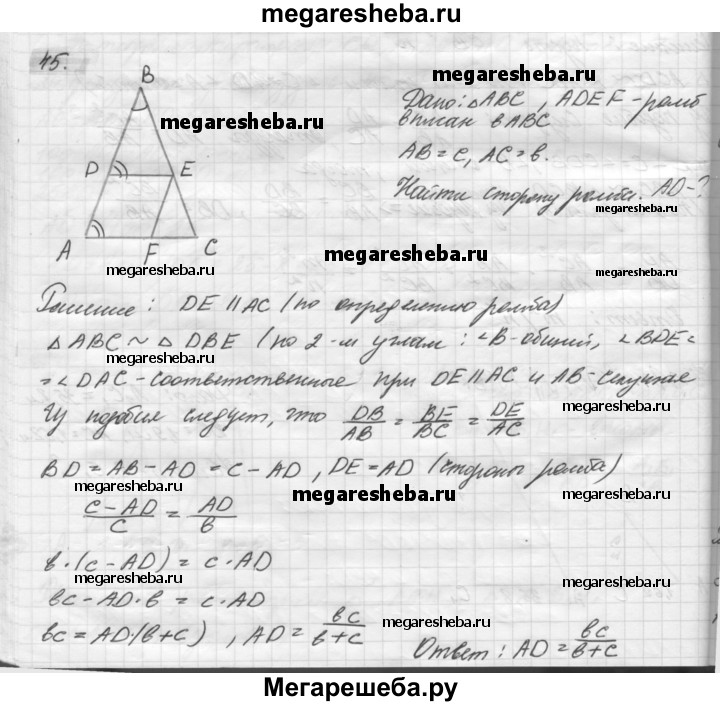 megaresheba.ru
45.
B
D
E
A
F
C
Дано: △ABC, ADEF - ромб
вписан в ABC
AB = c, AC = в.
Найти сторону ромба. AD - ?
megaresheba.ru
megaresheba.ru
megaresheba.ru
megaresheba.ru
megaresheba.ru
megaresheba.ru
Решение: DE ∥ AC (по определению ромба)
△ABC ~ △DBE (по 2-м углам: ∠B - общий, ∠BDE =
= ∠DAC - соответственные при DE ∥ AC и AB - секущая
megaresheba.ru
megaresheba.ru
Из подобия следует, что DB/AB = BE/BC = DE/AC
BD = AB - AD = c - AD, DE = AD (стороны ромба)
megaresheba.ru
megaresheba.ru
megaresheba.ru
(c - AD)/c = AD/в
в·(c - AD) = c·AD
megaresheba.ru
megaresheba.ru
вc - AD·в = c·AD
megaresheba.ru
вc = AD·(в+c), AD = вc/(в+c)
Ответ: AD = вc/(в+c)
Мегарешеба.ру